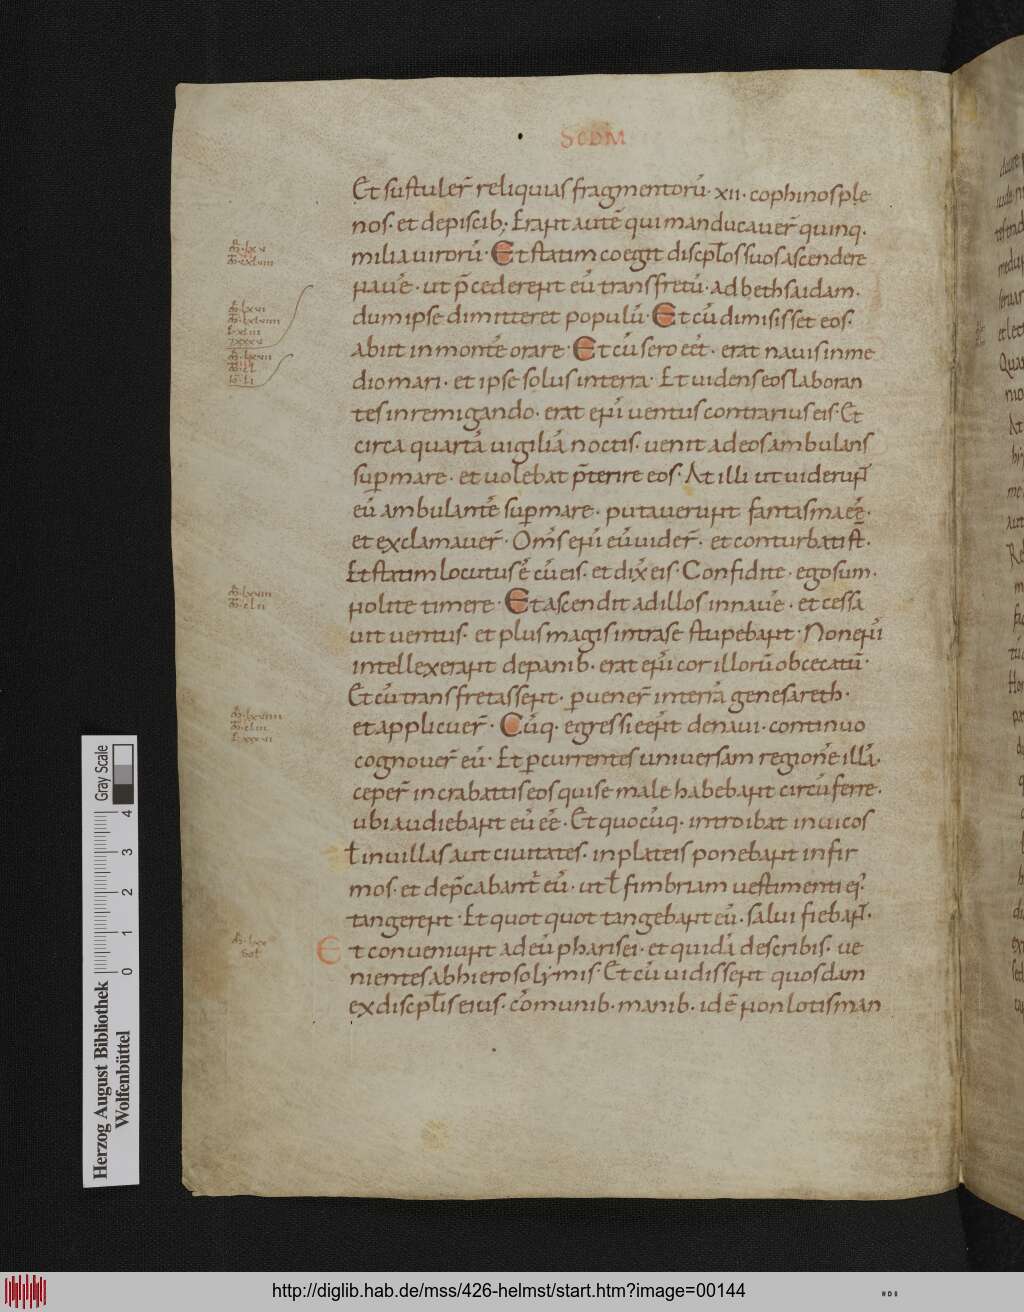 SCDM
Et sustuler̄ reliquias fragmentorū· xii· cophinos ple
nos· et depiscib;· Erant autē qui manducauer̄ quinq·
milia uirorū· Et statim coegit discipl̄os suos ascendere
nauē· ut p̄cederent eū trans fretū· ad bethsaidam·
dum ipse dimitteret populū· Et cū dimisisset eos·
abiit in montē orare· Et cū sero eēt· erat nauis in me
dio mari· et ipse solus in terra· Et uidens eos laboran
tes in remigando· erat eni̅ uentus contrarius eis· Et
circa quartā uigiliā noctis· uenit ad eos ambulans
sup̄ mare· et uolebat p̄terire eos· At illi ut uiderunt̄
eū ambulantē sup̄ mare· putauerunt fantasma eē·
et exclamauer̄· Om̄s eni̅ eū uider̄· et conturbati st̄·
Et statim locutus ē cū eis· et dix̄ eis· Confidite· ego sum·
nolite timere· Et ascendit ad illos in nauē· et cessa
uit uentus· et plus magis intra se stupebant· Non eni̅
intellexerant de panib· erat eni̅ cor illorū obcecatū·
Et cū transfretassent· p̄uener̄ in terrā genesareth·
et applicuer̄· Cūq· egressi eēnt de naui· continuo
cognouer̄ eū· Et p̄currentes uniuersam regionē illā·
ceper̄ in crabattis eos qui se male habebant circūferre·
ubi audiebant eū eē· Et quocūq· introibat in uicos
ł in uillas aut ciuitates· in plateis ponebant infir
mos· et dep̄cabant̄ eū· ut ł fimbriam uestimenti ei·
tangerent· Et quot quot tangebant eū· salui fiebant̄·
Et conueniunt ad eū pharisei· et quidā de scribis· ue
nientes ab hierosolymis· Et cū uidissent quosdam
ex discipl̄is eius· cōmunib· manib· id ē non lotis man
Gray Scale
0 1 2 3 4
Herzog August Bibliothek
Wolfenbüttel
http://diglib.hab.de/mss/426-helmst/start.htm?image=00144